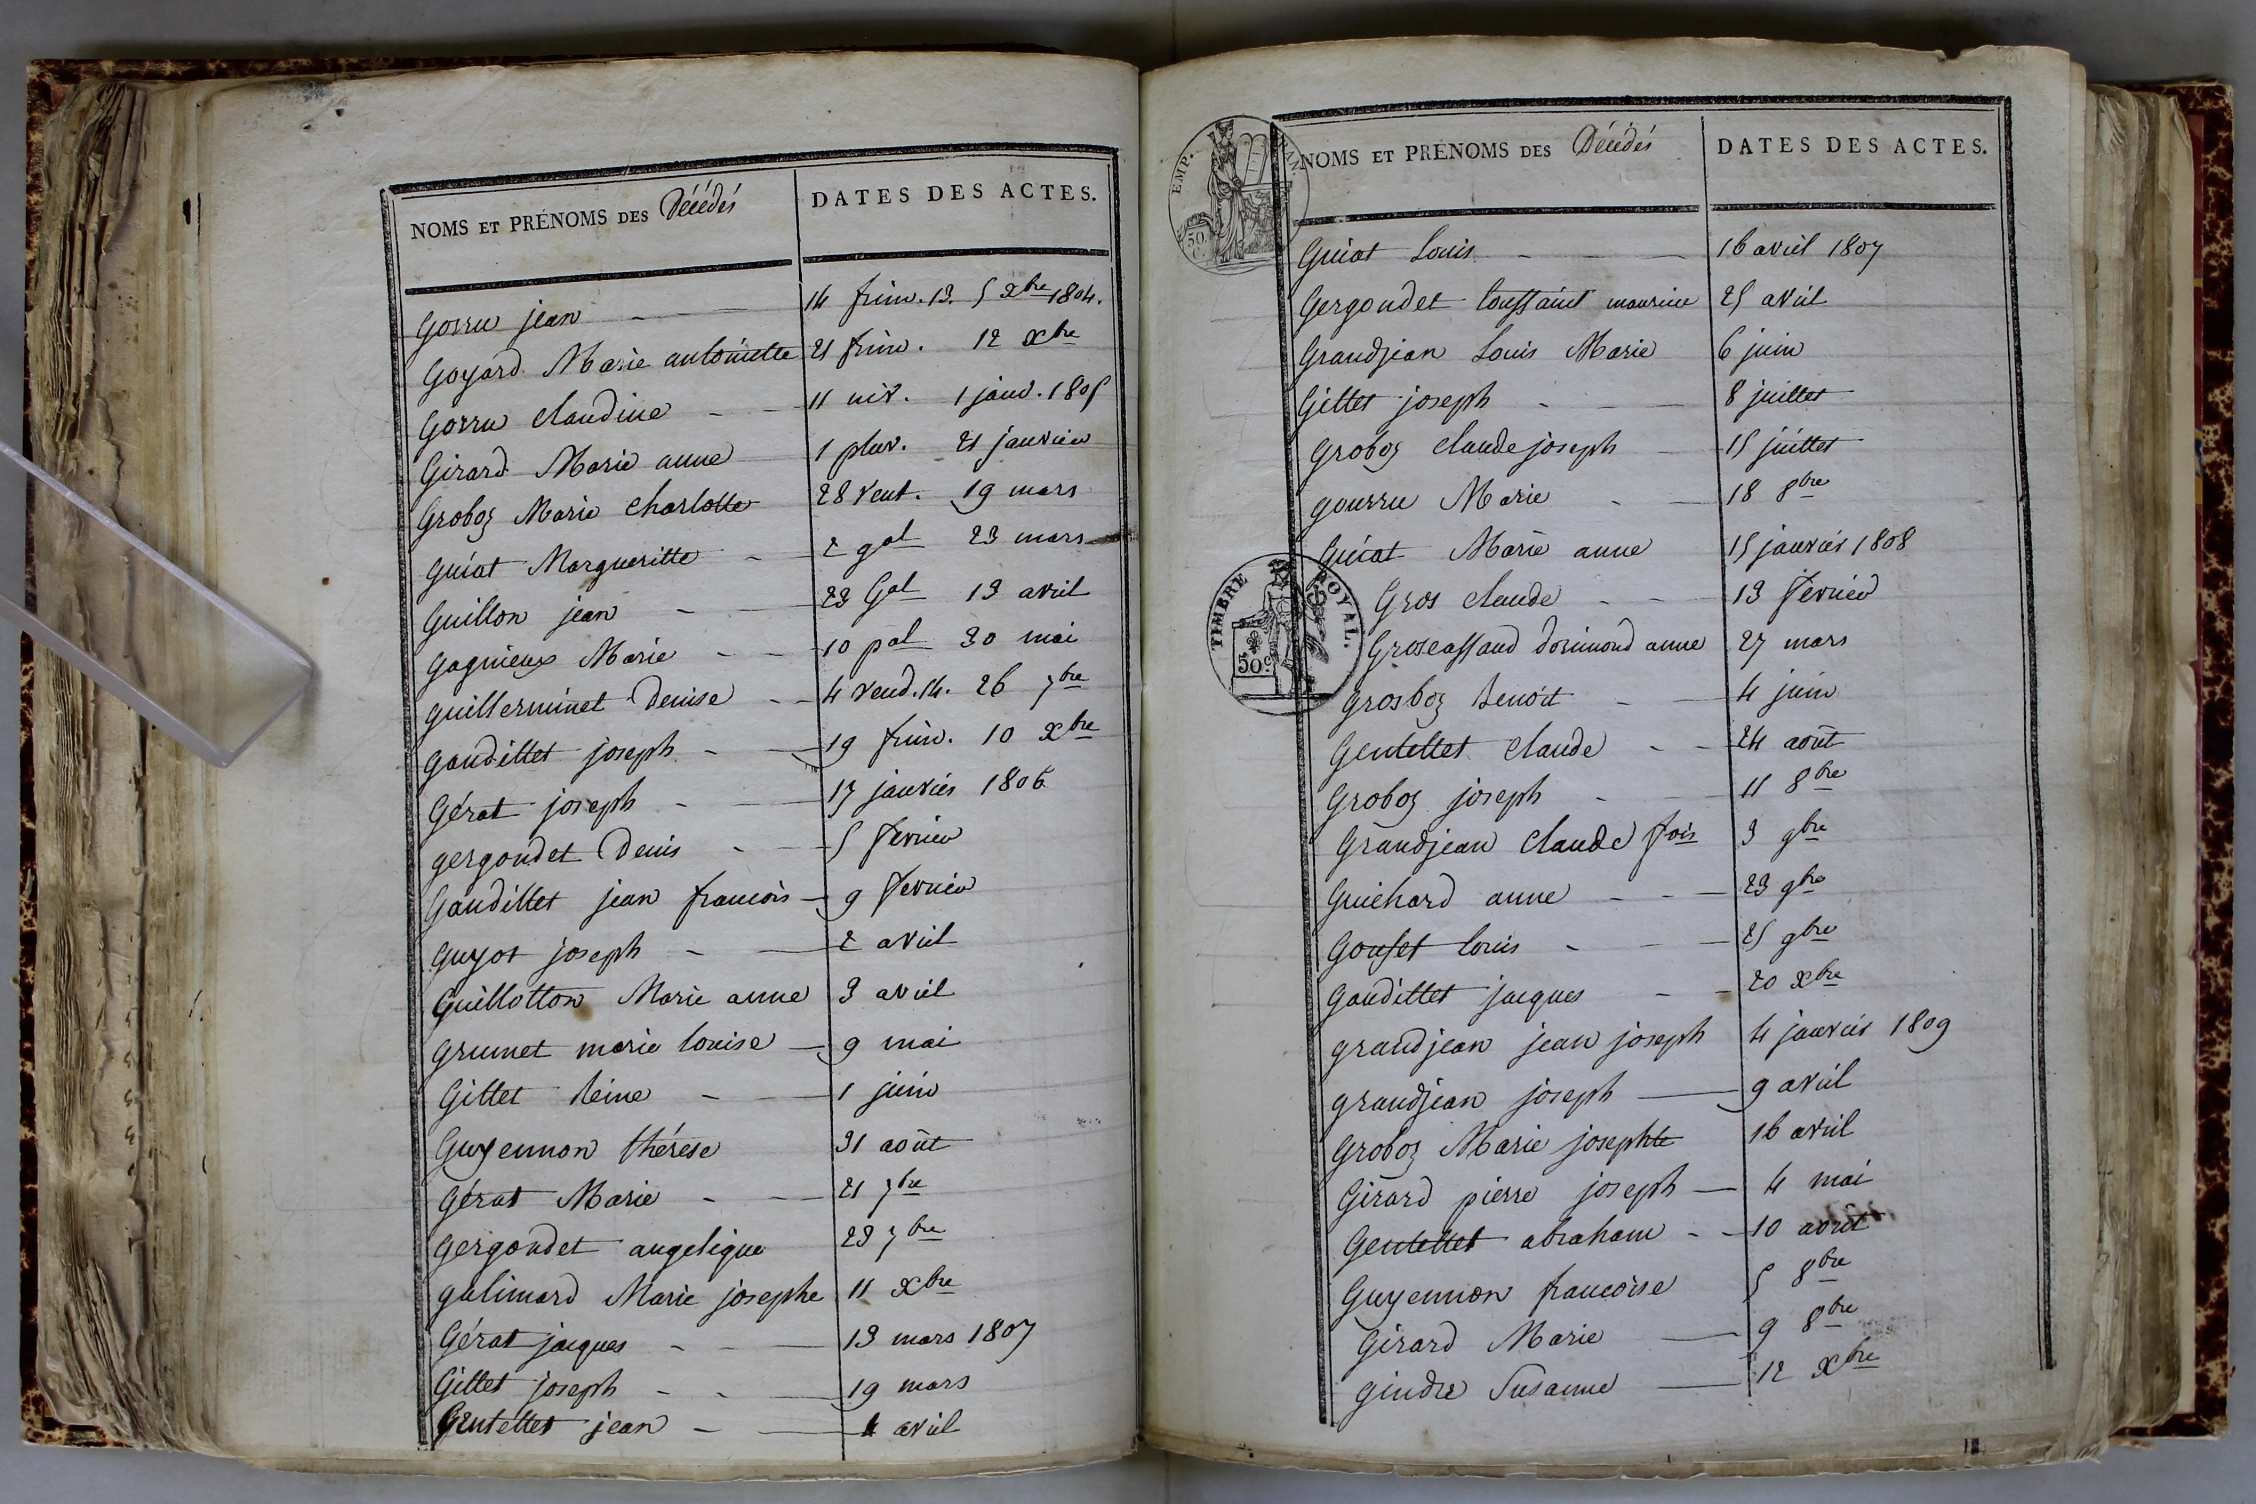 NOMS ET PRÉNOMS DES Décédés DATES DES ACTES.
Gorru jean 14 frim. 13. 5 xbre 1804.
Goyard Marie antoinette 21 frim. 12 xbre
Gorru claudine 11 niv. 1 janv. 1805
Girard Marie anne 1 pluv. 21 janvier
Groboz Marie charlotte 28 vent. 19 mars
Guiat Margueritte 2 gal 23 mars
Guillon jean 23 Gal 13 avril
Gagnieux Marie 10 pal 30 mai
Guillerminet Denise 4 vend. 14. 26 7bre
Gaudillet joseph 19 frim. 10 xbre
Gérat joseph 17 janvier 1806
gergondet Denis 5 fevrier
Gaudillet jean francois 9 fevrier
Guyot joseph 2 avril
Guillotton Marie anne 3 avril
Grumet marie louise 9 mai
Gillet Reine 1 juin
Guyennon thérèse 31 août
Gérat Marie 21 7bre
Gergondet angelique 23 7bre
galimard Marie josephe 11 xbre
Gérat jacques 13 mars 1807
Gillet joseph 19 mars
Gentellet jean 4 avril
EMP.
50 C.
NOMS ET PRÉNOMS DES Décédés DATES DES ACTES.
Guiat Louis 16 avril 1807
Gergondet toussaint maurice 25 avril
Grandjean Louis Marie 6 juin
Gillet joseph 8 juillet
Groboz claude joseph 15 juillet
gourru Marie 18 8bre
Guicat Marie anne 15 janvier 1808
TIMBRE ROYAL.
50c
Gros claude 13 fevrier
Groscassand dorimond anne 27 mars
Grosboz Benoit 4 juin
Gentellet claude 24 août
Groboz joseph 11 8bre
Grandjean claude fois 3 9bre
Guichard anne 23 9bre
Gouset louis 25 9bre
Gaudillet jacques 20 xbre
grandjean jean joseph 4 janvier 1809
grandjean joseph 9 avril
Groboz Marie josephte 16 avril
Girard pierre joseph 4 mai
Gentellet abraham 10 août
Guyennon francoise 5 8bre
Girard Marie 9 8bre
Gindre Susanne 12 xbre